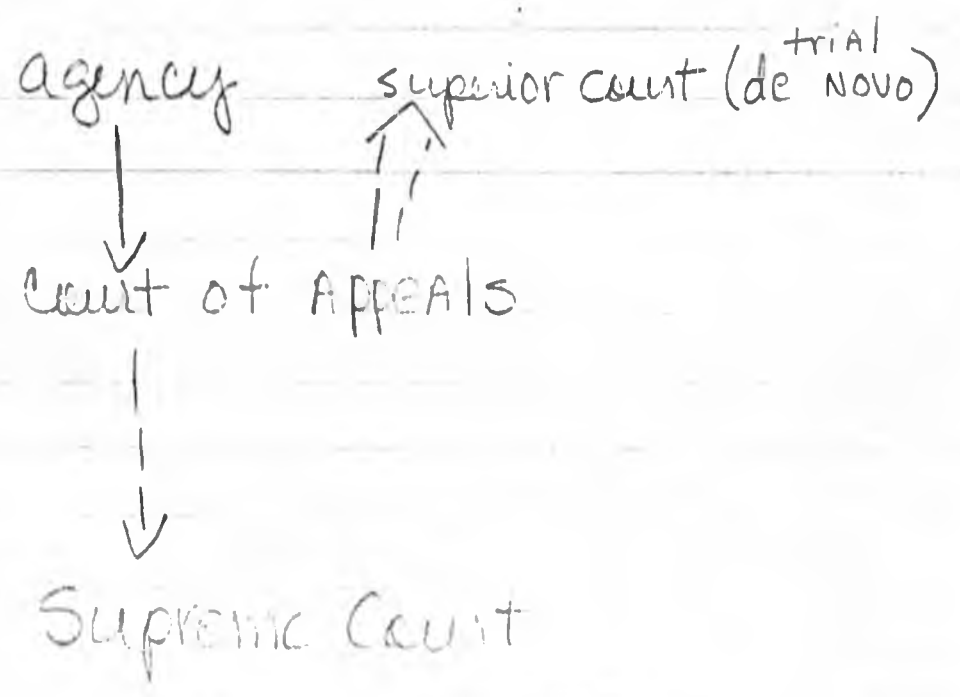 agency superior court (de trial NOVO)
Court of Appeals
Supreme Court